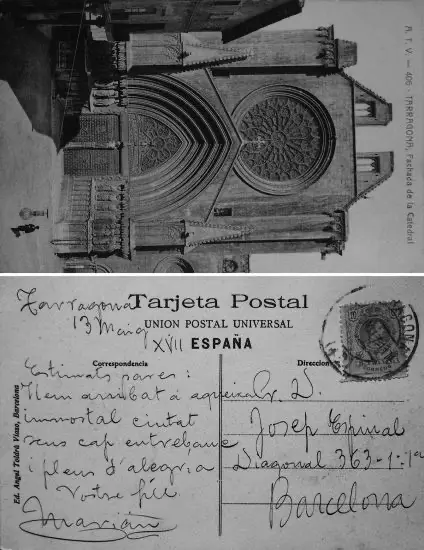 A. T. V. — 406 - TARRAGONA, Fachada de la Catedral
Tarjeta Postal
UNION POSTAL UNIVERSAL
ESPAÑA
Correspondencia
Dirección
Ed. Angel Toldrá Viazo, Barcelona
Tarragona
13 Maig
XVII
Estimats pares:
Hem arribat á aqueixa
inmortal ciutat
sens cap entrebanc
i plens d'alegria
Vostre fill
Marián
Sr. D.
Josep Espinal
Diagonal 363-1-1ª
Barcelona
CORREOS